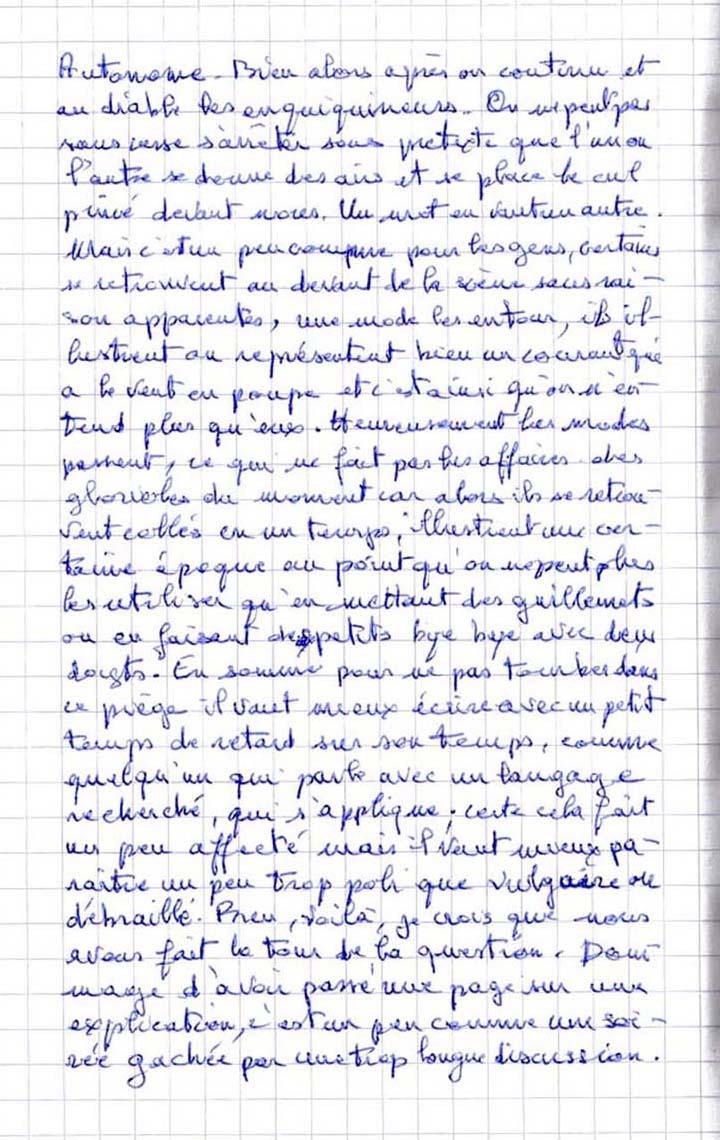 Autonome. Bien alors après on continu et
au diable les enquiquineurs. On ne peut pas
sans cesse s'arrêter sous prétexte que l'un ou
l'autre se donne des airs et se place le cul
pincé devant nous. Un mot en vaut un autre.
Mais c'est un peu comme pour les gens, certains
se retrouvent au devant de la scène sans rai-
son apparentes, une mode les entour, ils il-
lustrent ou représentent bien un courant qui
a le vent en poupe et c'est ainsi qu'on n'en-
tend plus qu'eux. Heureusement les modes
passent, ce qui ne fait pas les affaires des
glorioles du moment car alors ils se retrou-
vent collés en un temps, illustrent une cer-
taine époque au point qu'on ne peut plus
les utiliser qu'en mettant des guillemets
ou en faisant des petits bye bye avec deux
doigts. En somme pour ne pas tomber dans
ce piège il vaut mieux écrire avec un petit
temps de retard sur son temps, comme
quelqu'un qui parle avec un langage
recherché, qui s'applique ; certe cela fait
un peu affecté mais il vaut mieux pa-
raître un peu trop poli que vulgaire ou
débraillé. Bien, voilà, je crois que nous
avons fait le tour de la question. Dom-
mage d'avoir passé une page sur une
explication, c'est un peu comme une soi-
rée gachée par une trop longue discussion.